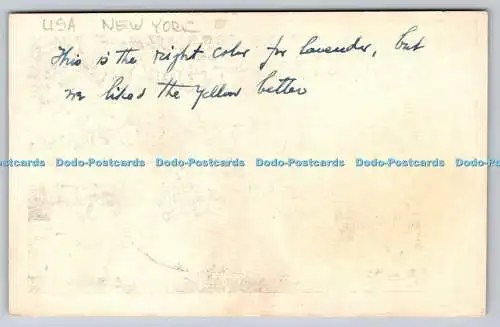 USA NEW YORK
This is the right color for lavender, but
we liked the yellow better
Dodo-Postcards Dodo-Postcards Dodo-Postcards Dodo-Postcards Dodo-Postcards